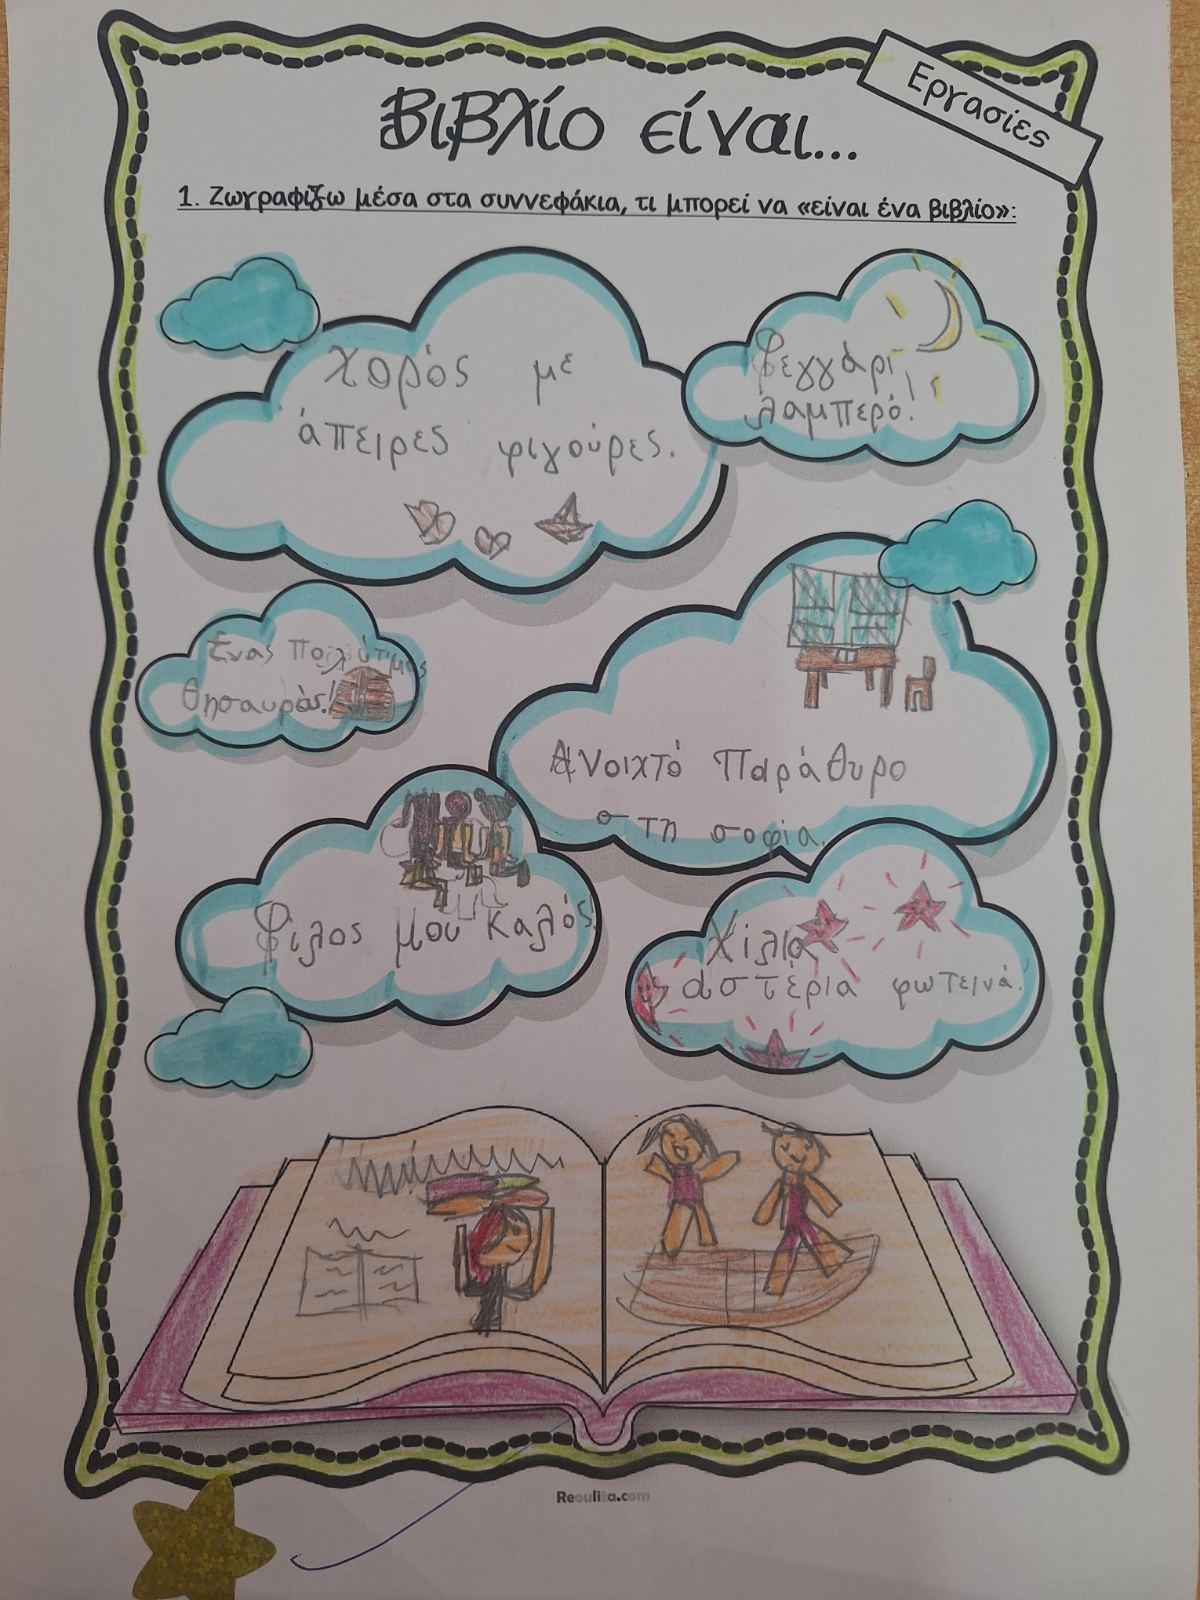 Εργασίες
Βιβλίο είναι...
1. Ζωγραφίζω μέσα στα συννεφάκια, τι μπορεί να «είναι ένα βιβλίο»:
Χορός με
άπειρες φιγούρες.
Φεγγάρι
λαμπερό!
Ένας πολύτιμος
θησαυρός!
Ανοιχτό παράθυρο
στη σοφία.
Φίλος μου καλός!
Χίλια
αστέρια φωτεινά!
Reoulita.com